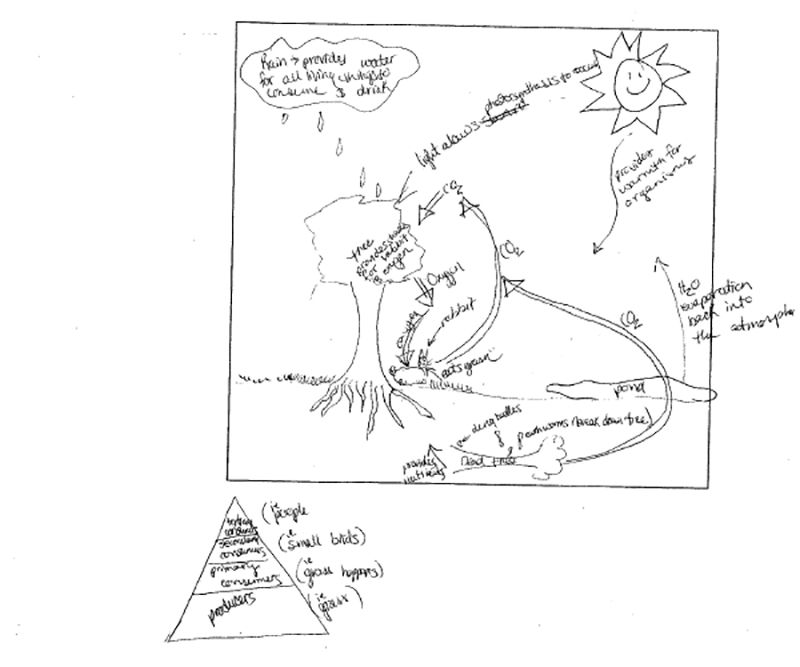 Rain → provides water
for all living things to
consume & drink
light allows photosynthesis to occur
provides
warmth for
organisms
CO2
CO2
CO2
tree
provides
for rabbit
& oxygen
Oxygen
oxygen
rabbit
eats grass
H2O
evaporation
back into
the atmosphere
pond
dung beetles
&
earthworms (break down tree)
dead tree
provides
nutrients
tertiary
consumers
(ie people
secondary
consumers
(ie small birds)
primary
consumers
(ie grass hoppers)
producers
(ie grass)